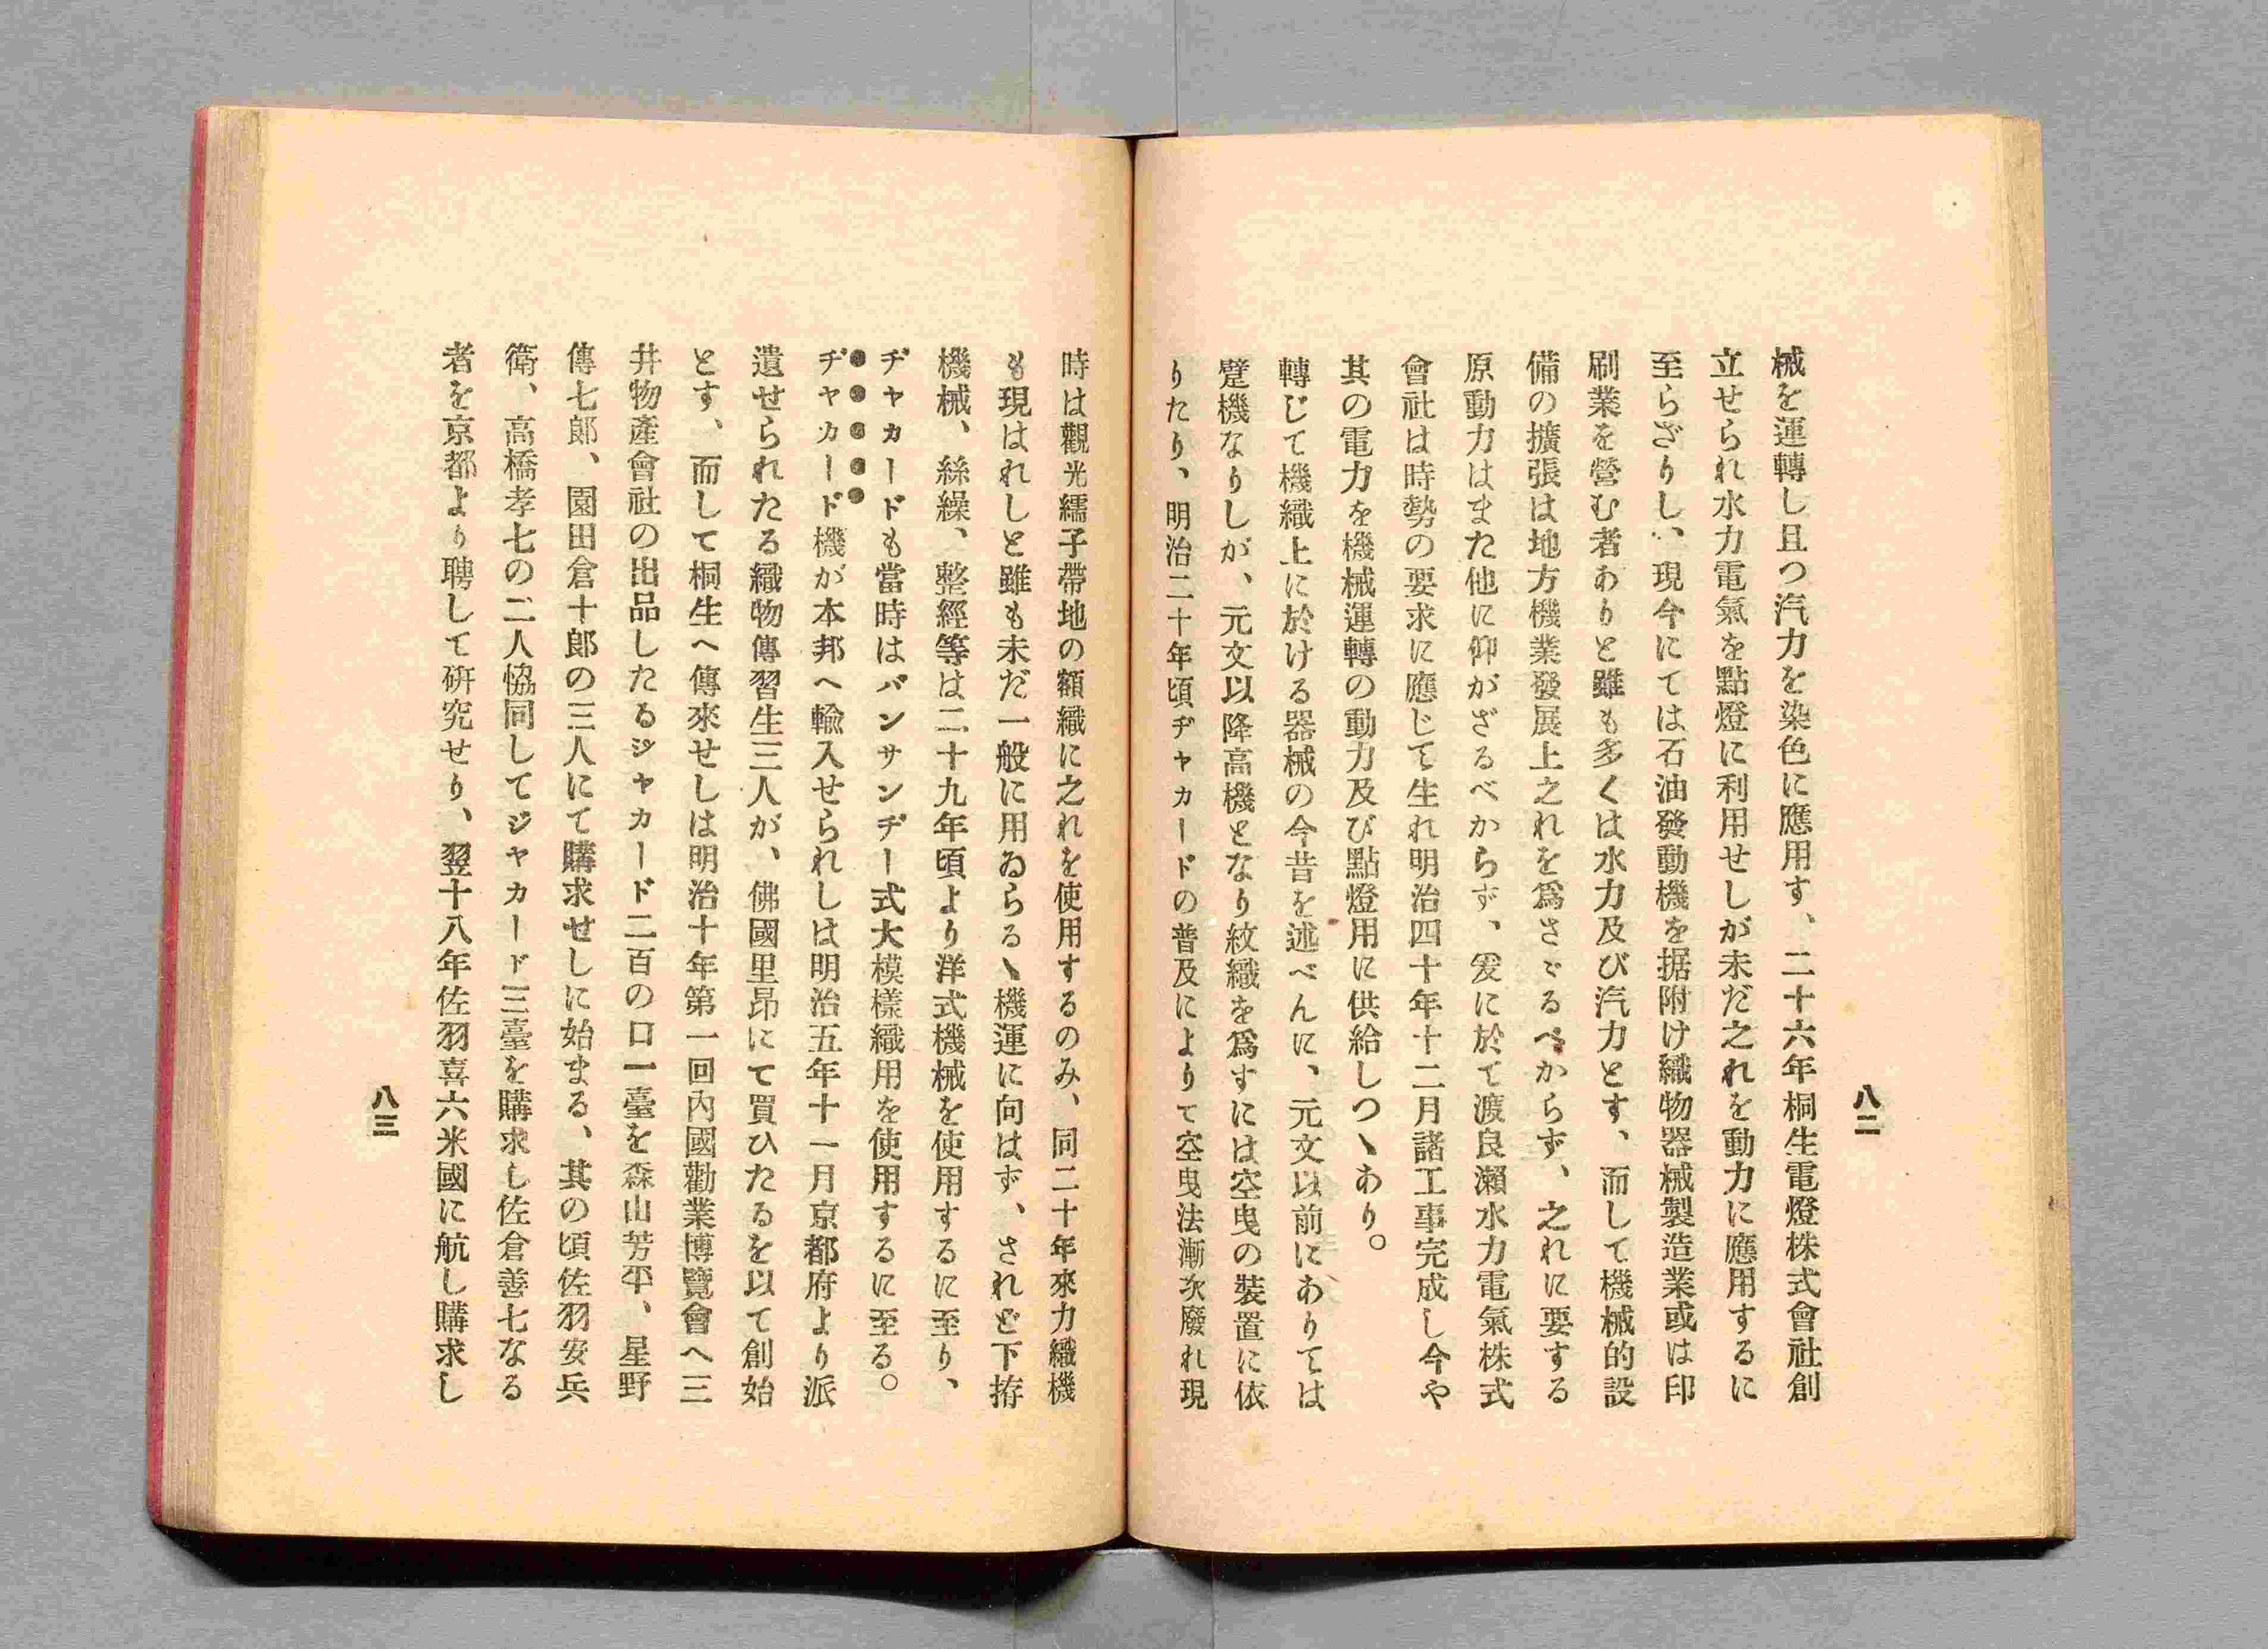 八二
械を運轉し且つ汽力を染色に應用す、二十六年桐生電燈株式會社創
立せられ水力電氣を點燈に利用せしが未だ之れを動力に應用するに
至らざりし、現今にては石油發動機を据附け織物器械製造業或は印
刷業を營む者ありと雖も多くは水力及び汽力とす、而して機械的設
備の擴張は地方機業發展上之れを爲さゞるべからず、之れに要する
原動力はまた他に仰がざるべからず、爰に於て渡良瀨水力電氣株式
會社は時勢の要求に應じて生れ明治四十年十二月諸工事完成し今や
其の電力を機械運轉の動力及び點燈用に供給しつゝあり。
轉じて機織上に於ける器械の今昔を述べんに、元文以前にありては
躄機なりしが、元文以降高機となり紋織を爲すには空曳の裝置に依
りたり、明治二十年頃ヂャカードの普及によりて空曳法漸次廢れ現
時は觀光繻子帶地の額織に之れを使用するのみ、同二十年來力織機
も現はれしと雖も未だ一般に用ゐらるゝ機運に向はず、されど下拵
機械、絲繰、整經等は二十九年頃より洋式機械を使用するに至り、
ヂャカードも當時はバンサンヂー式大模樣織用を使用するに至る。
ヂャカード機が本邦へ輸入せられしは明治五年十一月京都府より派
遣せられたる織物傳習生三人が、佛國里昂にて買ひたるを以て創始
とす、而して桐生へ傳來せしは明治十年第一回內國勸業博覽會へ三
井物產會社の出品したるジャカード二百の口一臺を森山芳平、星野
傳七郞、園田倉十郞の三人にて購求せしに始まる、其の頃佐羽安兵
衛、高橋孝七の二人恊同してジャカード三臺を購求し佐倉善七なる
者を京都より聘して硏究せり、翌十八年佐羽喜六米國に航し購求し
八三